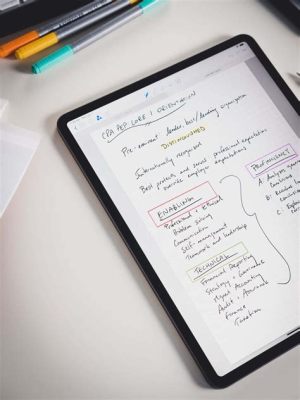 CPA PEP CORE 1 ORIENTATION
Pre-eminent leader, best/leading organization
DISTINGUISHED
Internationally recognized
Best protects and serves professional expectations
exercise employer expectations
ENABLING
Professional + Ethical
Problem solving
Communication
Self-management
Teamwork and leadership
TECHNICAL
Financial Reporting
Strategy + Governance
Mgmt Accounting
Audit + Assurance
Finance
Taxation
PROFICIENCY
A: Analysis
B:
C: